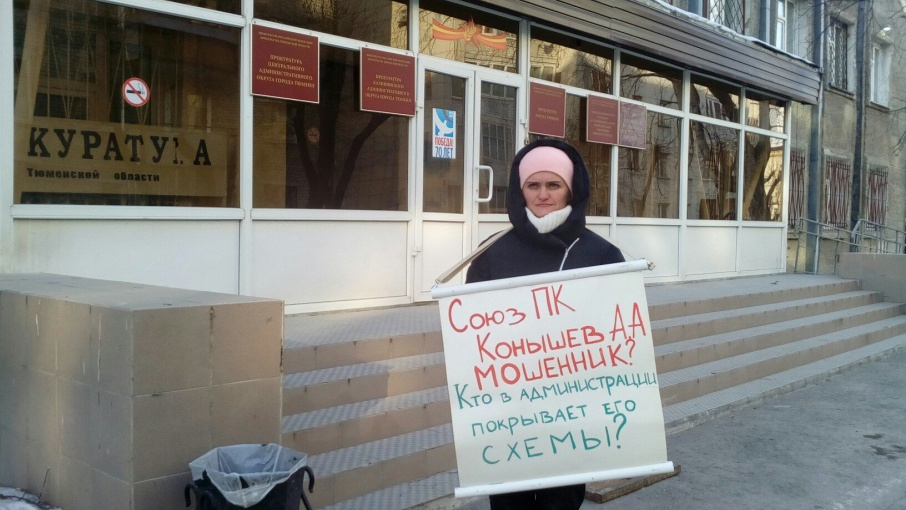 ПРОКУРАТУРА
ЦЕНТРАЛЬНОГО
АДМИНИСТРАТИВНОГО
ОКРУГА ГОРОДА ТЮМЕНИ
ПРОКУРАТУРА
АДМИНИСТРАТИВНОГО
ОКРУГА ГОРОДА ТЮМЕНИ
КУРАТУ А
Тюменской области
ПОБЕДА!
70 ЛЕТ
Союз ПК
Конышев А.А
мошенник?
Кто в администрации
покрывает его
схемы?